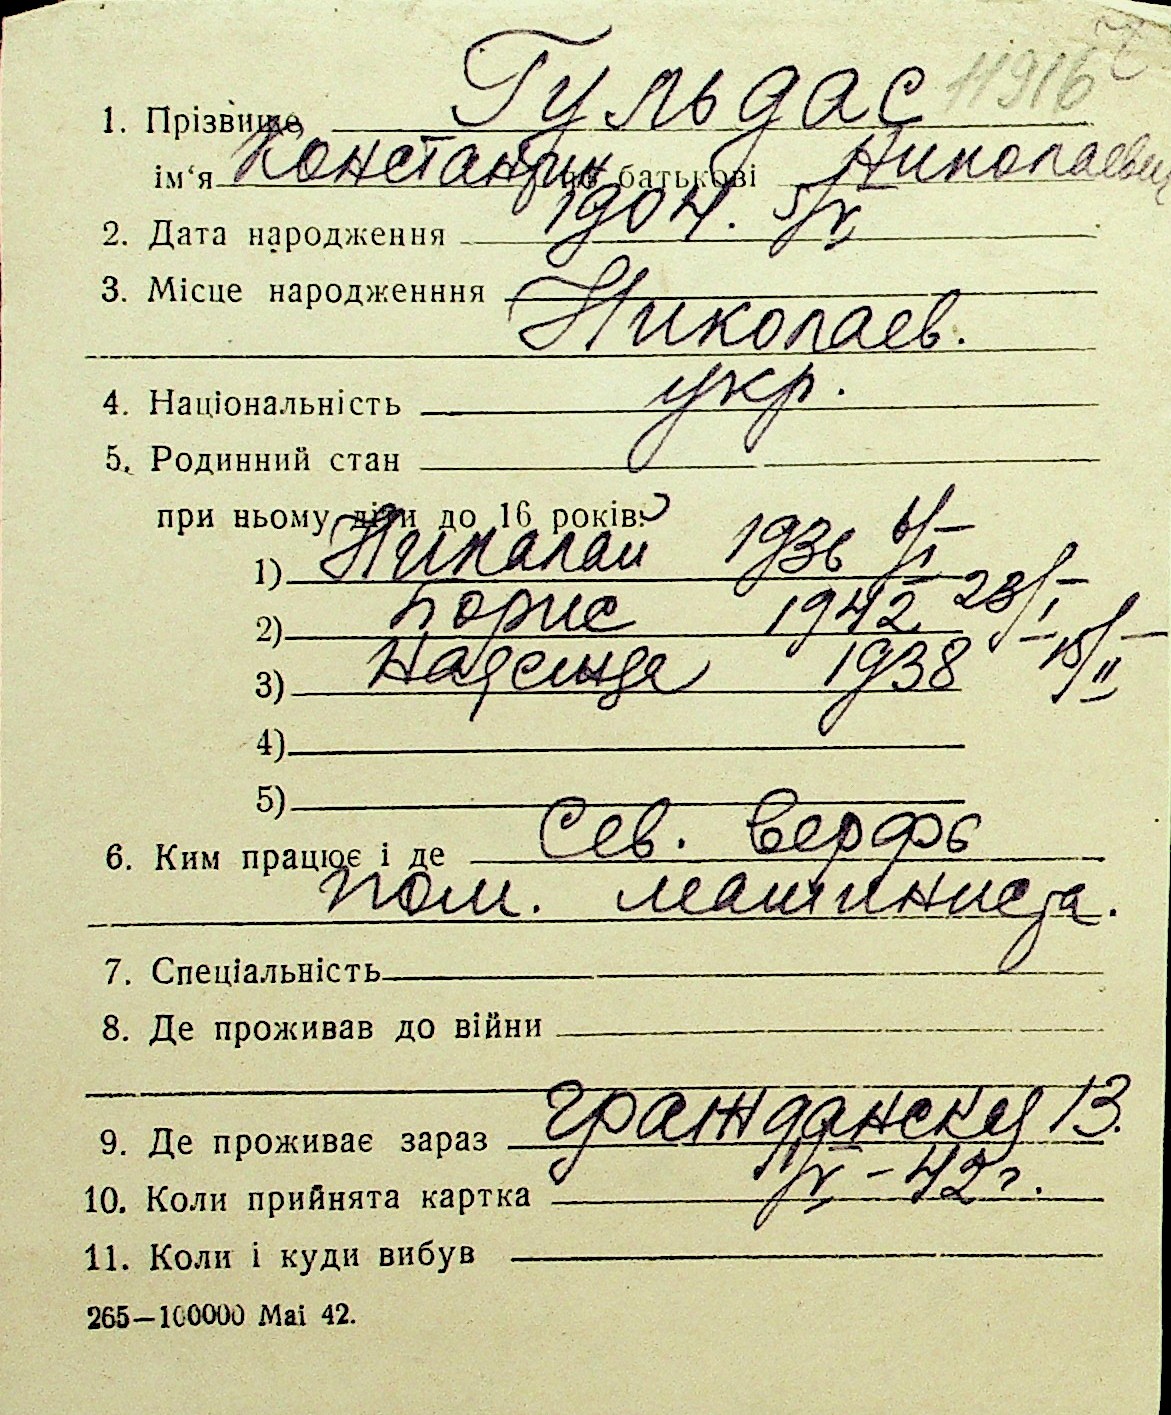 11916
1. Прізвище Гульдас
ім‘я Константин по батькові Николаевич
2. Дата народження 1904. 5/X
3. Місце народженння
Николаев.
4. Національність укр.
5. Родинний стан
при ньому діти до 16 років:
1) Николай 1936 6/I
2) Борис 1942 28/I
3) Надежда 1938 – 15/II
4)
5)
6. Ким працює і де Сев. Верфь
пом. машиниста.
7. Спеціальність
8. Де проживав до війни
9. Де проживає зараз Гражданская 13.
10. Коли прийнята картка – 42 г.
11. Коли і куди вибув
265—100000 Маі 42.